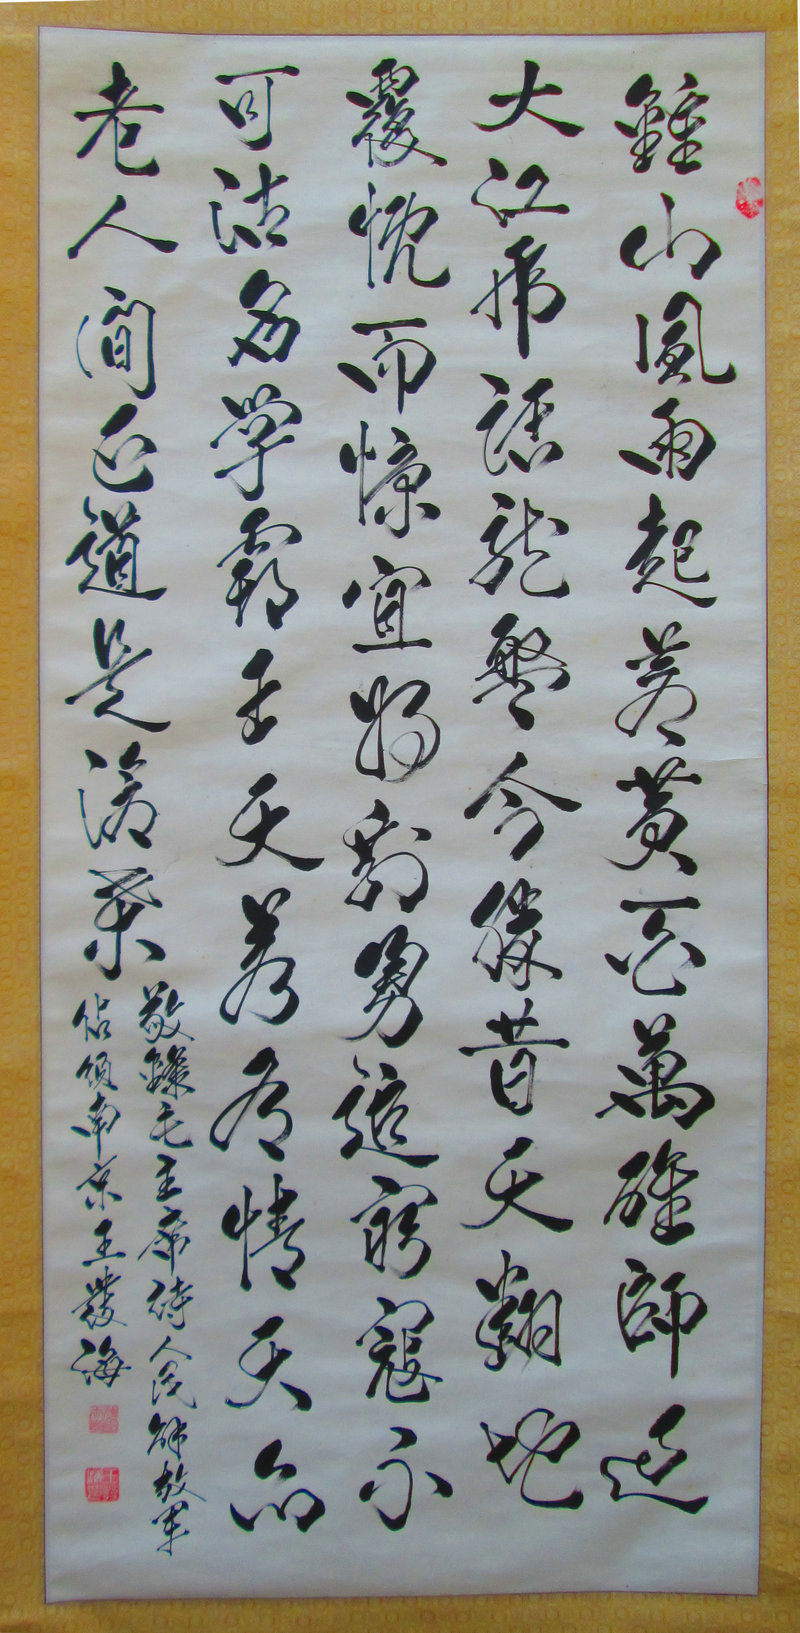 鍾山風雨起蒼黃百萬雄師過
大江虎踞龍盤今勝昔天翻地
覆慨而慷宜將剩勇追窮寇不
可沽名學霸王天若有情天亦
老人間正道是滄桑
敬錄毛主席詩人民解放軍
佔領南京王發海